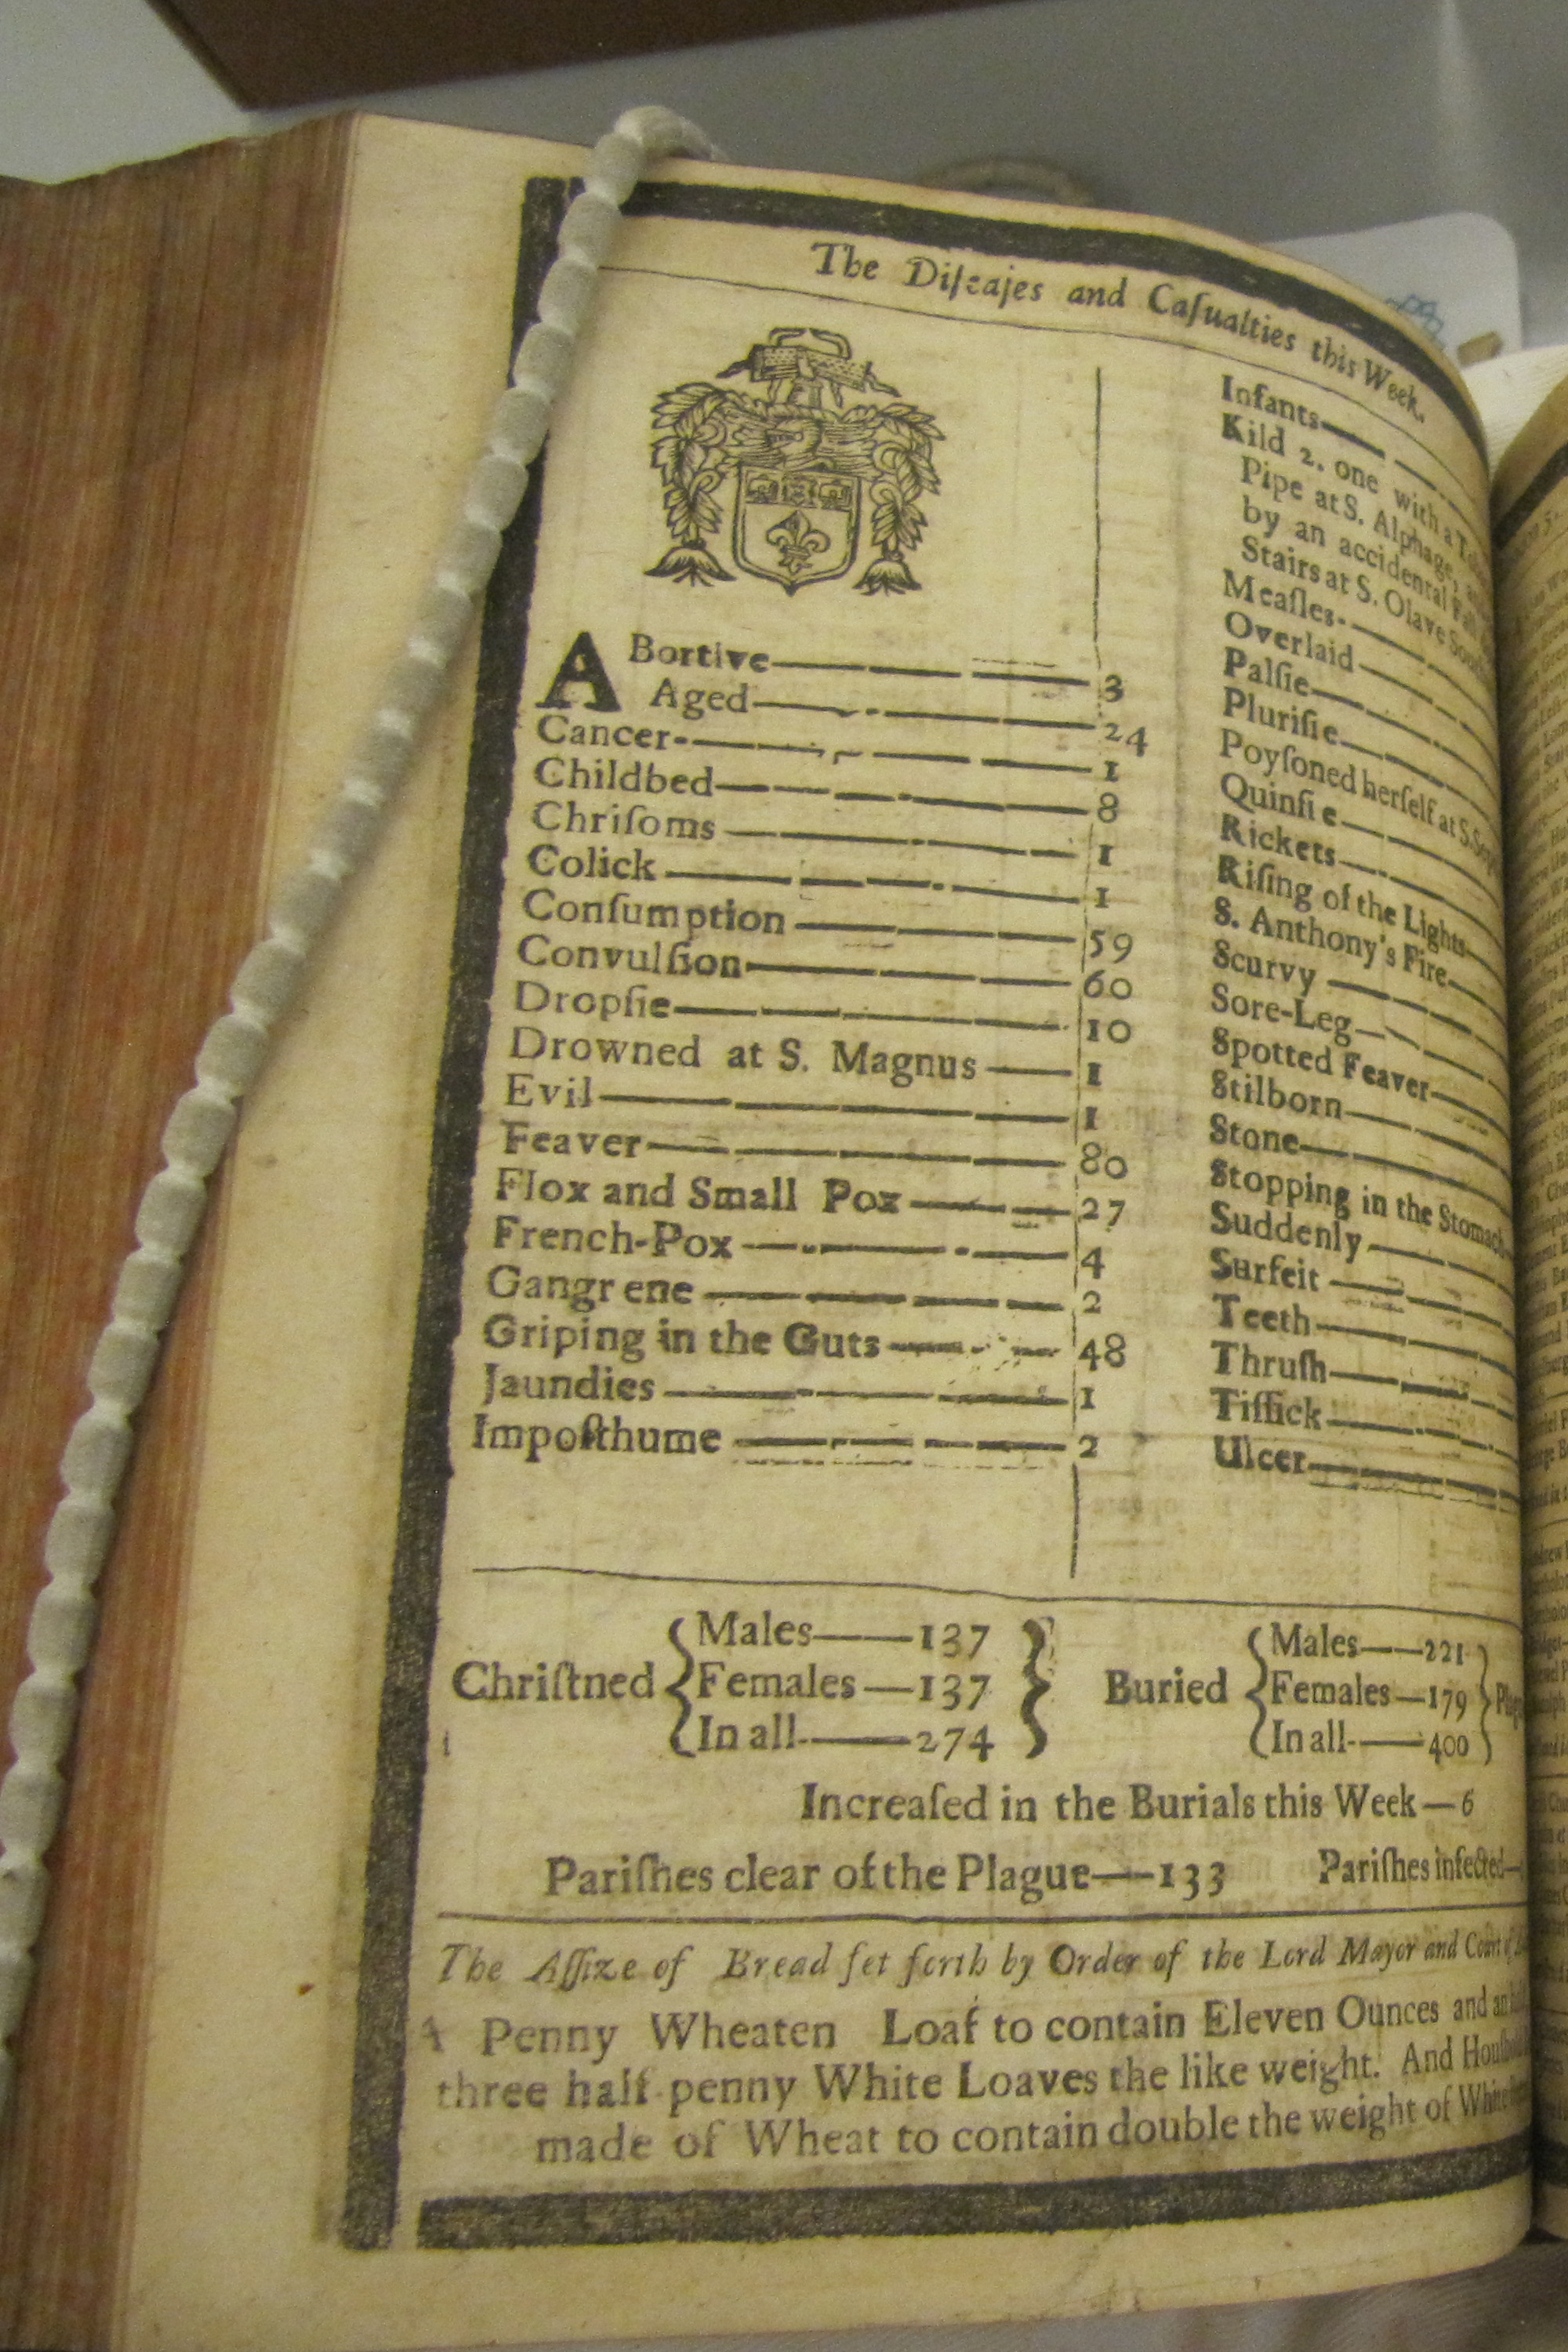 The Diſeaſes and Caſualties this Week.
ABortive 3
Aged 24
Cancer 1
Childbed 8
Chriſoms 1
Colick 1
Conſumption 59
Convulſion 60
Dropſie 10
Drowned at S. Magnus 1
Evil 1
Feaver 80
Flox and Small Pox 27
French-Pox 4
Gangrene 2
Griping in the Guts 48
Jaundies 1
Impoſthume 2
Infants
Kild 2. one with a
Pipe at S. Alphage,
by an accidental Fall
Stairs at S. Olave
Meaſles
Overlaid
Palſie
Pluriſie
Poyſoned herſelf at S.
Quinſie
Rickets
Riſing of the Lights
S. Anthony's Fire
Scurvy
Sore-Leg
Spotted Feaver
Stilborn
Stone
Stopping in the Stomach
Suddenly
Surfeit
Teeth
Thruſh
Tiſſick
Ulcer
Chriſtned
Males 137
Females 137
In all 274
Buried
Males 221
Females 179
In all 400
Increaſed in the Burials this Week — 6
Pariſhes clear of the Plague — 133 Pariſhes infected —
The Aſſize of Bread ſet forth by Order of the Lord Mayor and Court of
A Penny Wheaten Loaf to contain Eleven Ounces and
three half-penny White Loaves the like weight. And
made of Wheat to contain double the weight of